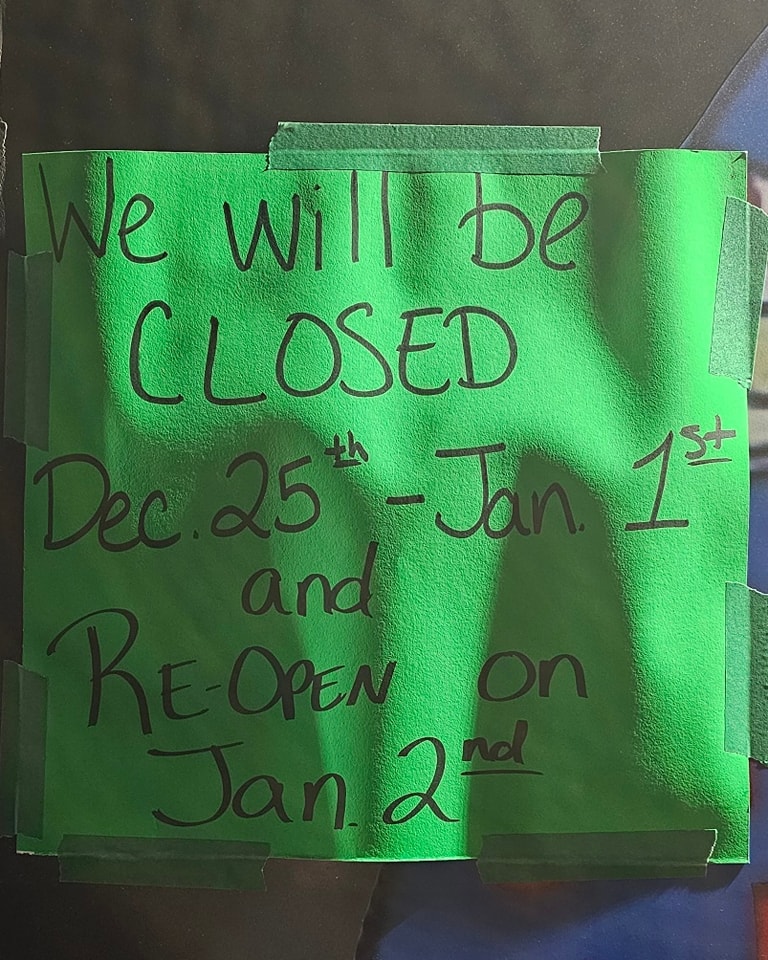 We will be
CLOSED
Dec. 25th - Jan. 1st
and
RE-OPEN on
Jan. 2nd